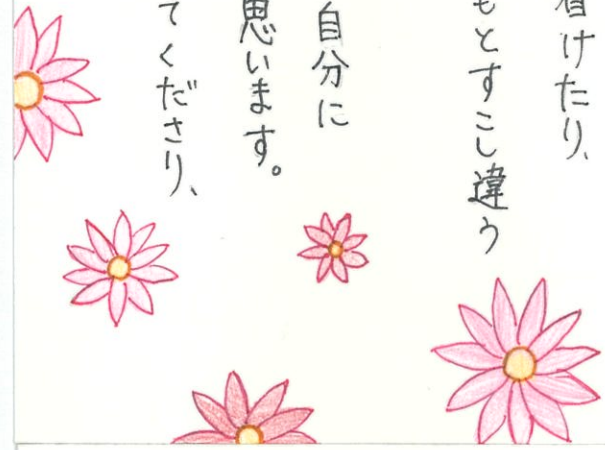 着けたり、
もとすこし違う
自分に
思います。
てくださり、